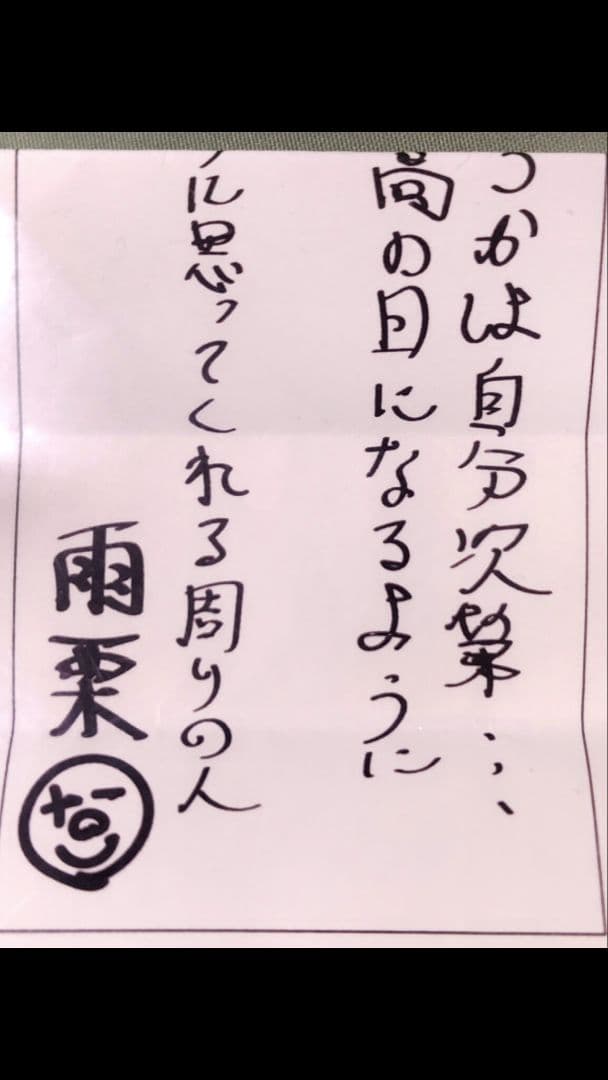 つかは自分次第・・・
高の日になるように
に思ってくれる周りの人
雨栗
な